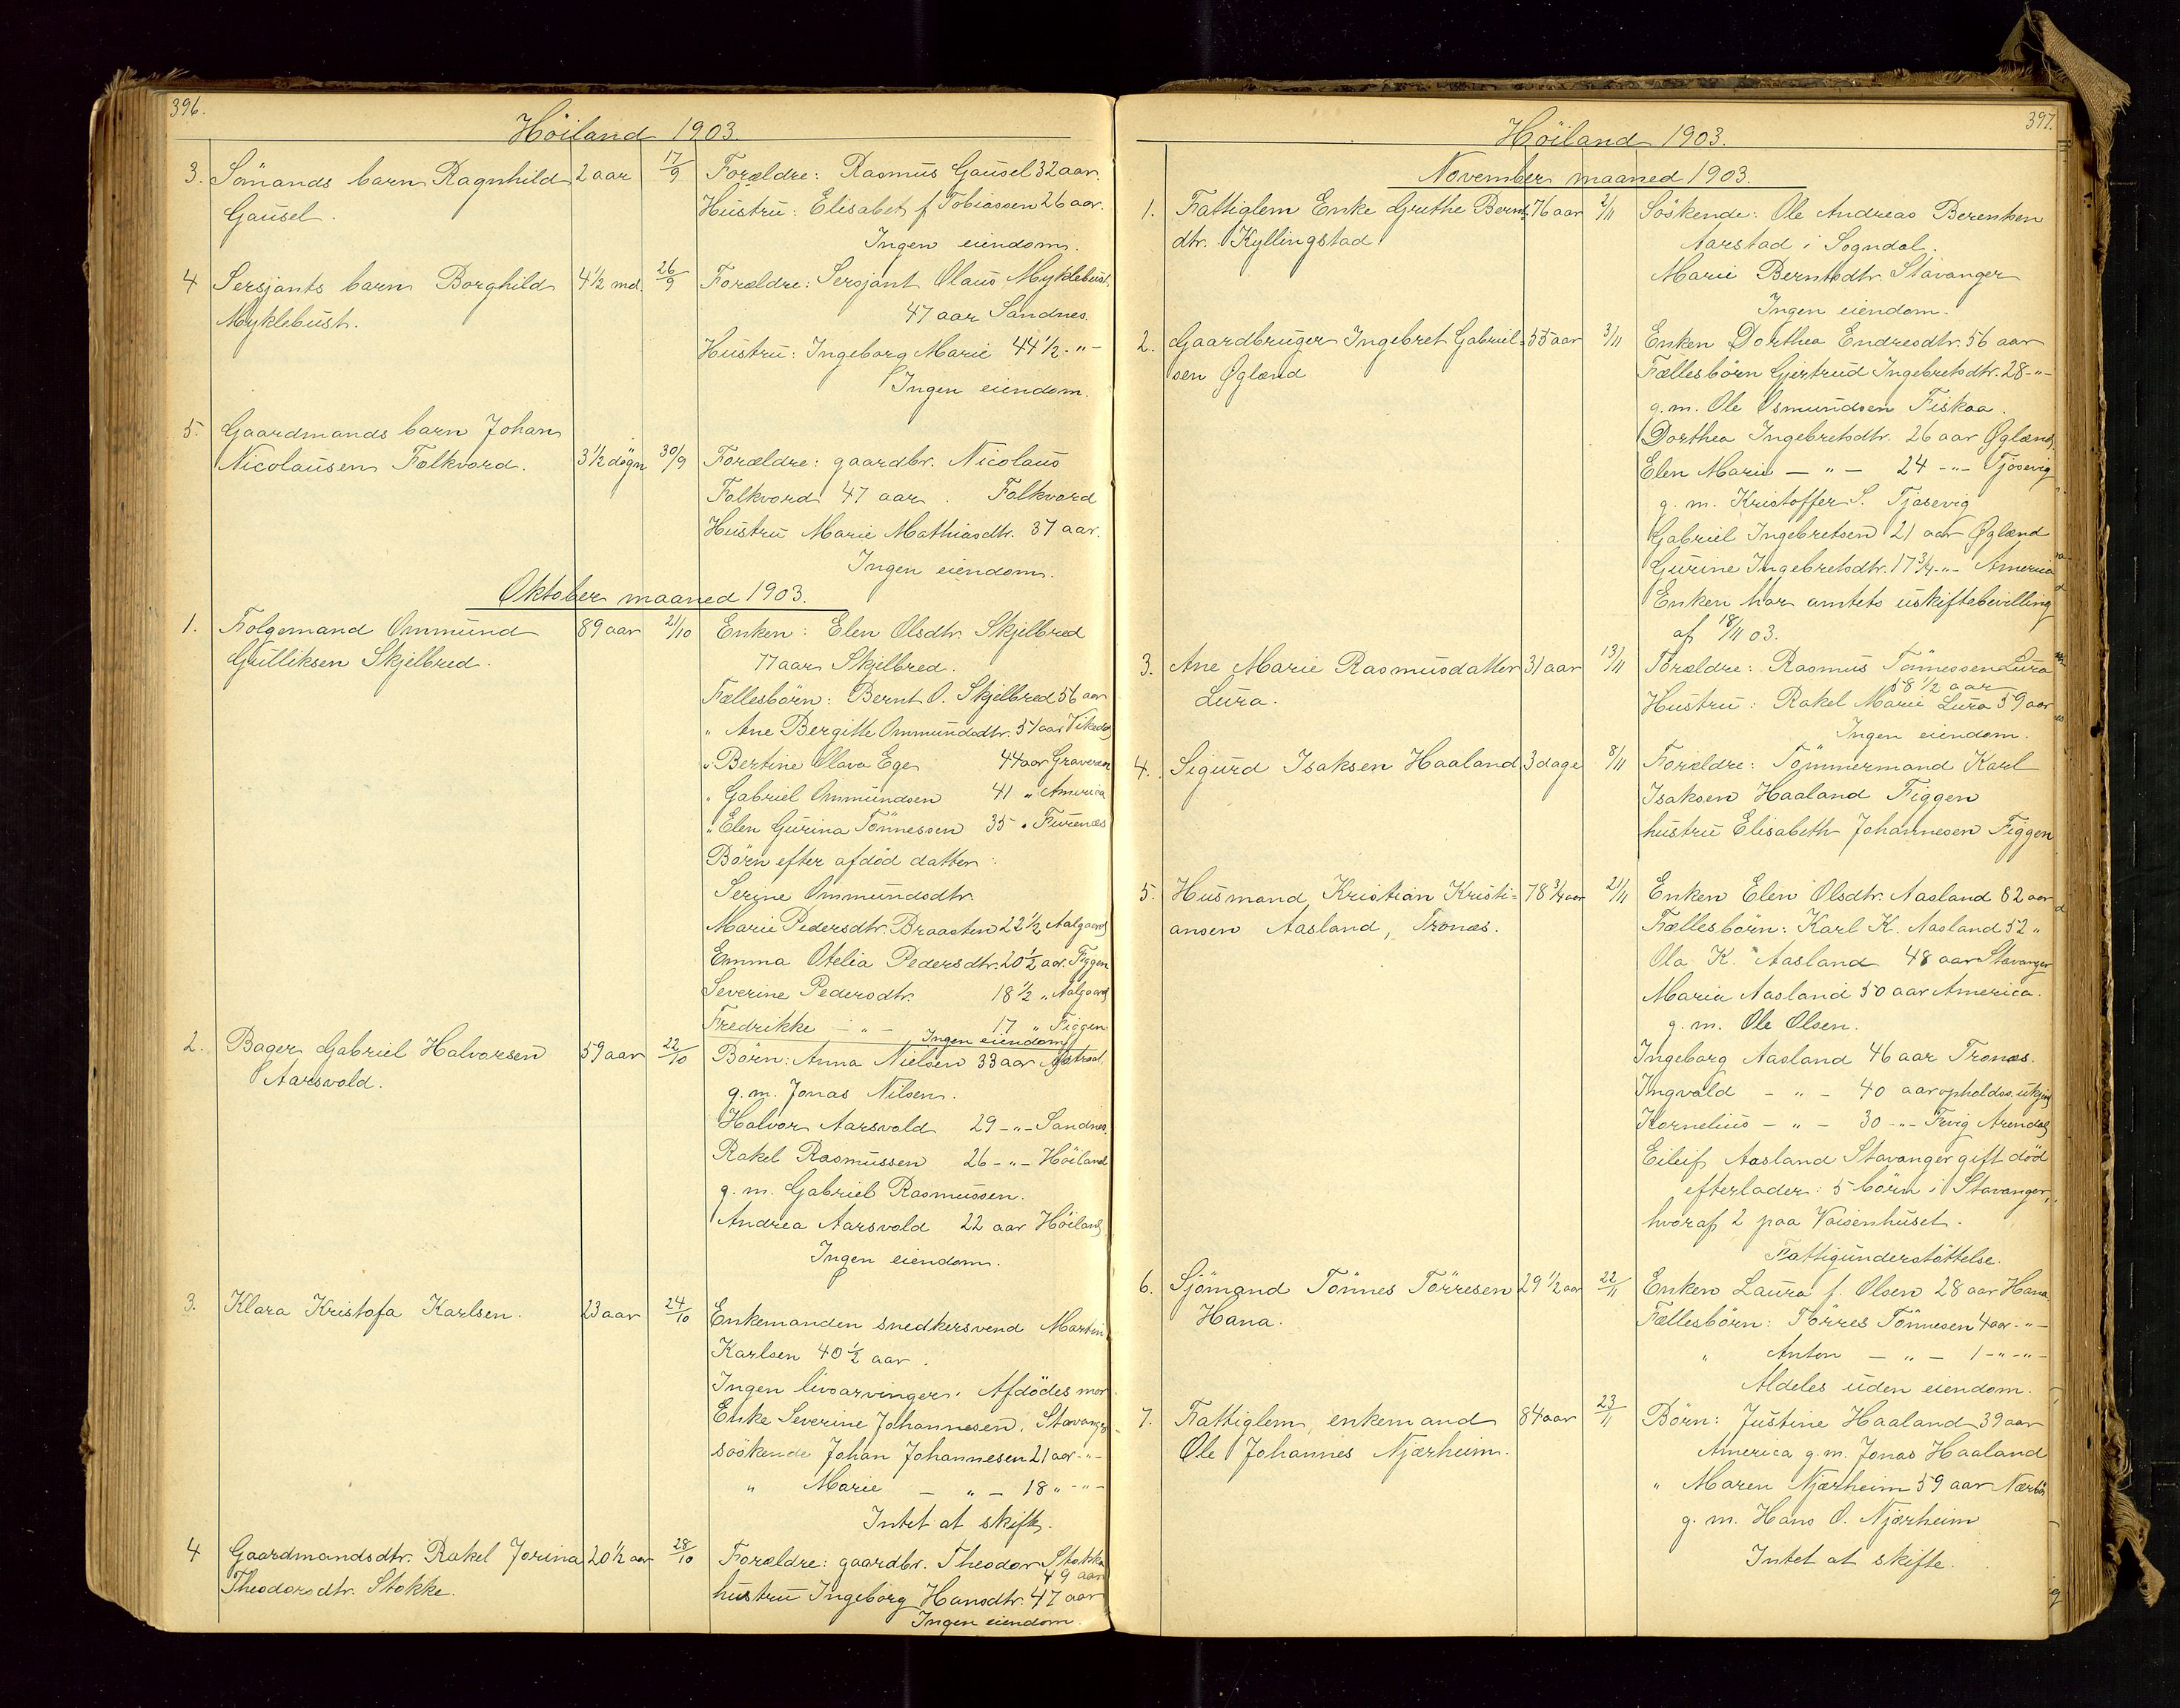 396.
Höiland 1903.
3. Sömands barn Ragnhild 2 aar 17/9 Forældre: Rasmus Gausel 32 aar.
Gausel. Hustru: Elisabet f. Tobiassen 26 aar.
Ingen eiendom.
4 Sersjants barn Borghild 4 1/2 md. 26/9 Forældre: Sersjant Olaus Myklebust.
Myklebust. 47 aar Sandnes.
Hustru: Ingeborg Marie 44 1/2 - " -
Ingen eiendom.
5. Gaardmands barn Johan
Nicolausen Folkvord. 3 1/2 døgn 30/9 Forældre: gaardbr. Nicolaus
Folkvord 47 aar. Folkvord
Hustru Marie Mathiasdtr. 37 aar.
Ingen eiendom.
Oktober maaned 1903.
1. Folgemand Ommund 89 aar 21/10 Enken: Elen Olsdtr. Skjelbred
Gulliksen Skjelbred. 77 aar Skjelbred.
Fællesbörn: Bernt O. Skjelbred 56 aar
" Ane Bergitte Ommundsdtr. 51 aar Vikedal
" Bertine Olava Ege 44 aar Graveren
" Gabriel Ommundsen 41 " America
" Elen Gurina Tönnessen 35 " Furenæs
Börn efter afdöd datter:
Serine Ommundsdtr.
Marie Pedersdtr. Braasten 22 1/2 Aalgaard
Emma Otelia Pedersdtr. 20 1/2 aar. Figgen
Severine Pedersdtr. 18 1/2 " Aalgaard
Fredrikke - " - 17 " Figgen
Ingen eiendom
2. Bager Gabriel Halvorsen 59 aar 22/10 Börn: Anna Nielsen 33 aar
Aarsvold. g. m. Jonas Nilsen.
Halvor Aarsvold 29 - " - Sandnes.
Rakel Rasmussen 26 - " - Höiland
g. m. Gabriel Rasmussen.
Andrea Aarsvold 22 aar Höiland
Ingen eiendom.
3. Klara Kristofa Karlsen. 23 aar 24/10 Enkemanden snedkersvend Martin
Karlsen 40 1/2 aar.
Ingen livsarvinger. Afdödes mor
Enke Severine Johannesen, Stavanger
söskende Johan Johannesen 21 aar - " -
" Marie - " - 18 " - " -
Intet at skifte.
4 Gaardmandsdtr. Rakel Jorina 20 1/2 aar 28/10 Forældre: gaardbr. Theodor Stokke
Theodorsdtr. Stokke. 49 aar
hustru Ingeborg Hansdtr. 47 aar
Ingen eiendom.
397.
Höiland 1903.
November maaned 1903.
1. Fattiglem Enke Grethe Bernts 76 aar 2/11 Söskende: Ole Andreas Berentsen
dtr. Kyllingstad. Aarstad i Sogndal.
Marie Berntsdtr. Stavanger
Ingen eiendom.
2. Gaardbruger Ingebret Gabriel= 55 aar 3/11 Enken Dorthea Endresdtr. 56 aar
sen Øgland Fællesbörn Gjertrud Ingebretsdtr. 28 - " -
g. m. Ole Osmundsen Fiskaa.
Dorthea Ingebretsdtr. 26 aar Øgland
Elen Marie - " - 24 - " - Tjosevig
g. m. Kristoffer S. Tjosevig
Gabriel Ingebretsen 21 aar Øgland
Gurine Ingebretsdtr. 17 3/4 - " - America
Enken har amtets uskiftebevilling
af 18/11 03.
3. Ane Marie Rasmusdatter 31 aar 13/11 Forældre: Rasmus Tönnessen Lura
Lura. 58 1/2 aar
Hustru: Rakel Marie Lura 59 aar
Ingen eiendom.
4. Sigurd Isaksen Haaland 3 dage 8/11 Forældre: Tömmermand Karl
Isaksen Haaland Figgen
hustru Elisabeth Johannesen Figgen
5. Husmand Kristian Kristi= 78 3/4 aar 21/11 Enken Elen Olsdtr. Aasland 82 aar
ansen Aasland, Tronæs. Fællesbörn: Karl K. Aasland 52 "
Ola K. Aasland 48 aar Stavanger
Maria Aasland 50 aar America.
g. m. Ole Olsen.
Ingeborg Aasland 46 aar Tronæs.
Ingvald - " - 40 aar opholdss. ukjend
Kornelius - " - 30 - " - Fevig Arendal
Eileif Aasland Stavanger gift död
efterlader: 5 börn i Stavanger,
hvoraf 2 paa Vaisenhuset.
Fattigunderstöttelse.
6. Sjömand Tönnes Törresen 29 1/2 aar 22/11 Enken Laura f. Olsen 28 aar Hana
Hana. Fællesbörn: Törres Tönnesen 4 aar - " -
" Anton - " - 1 - " - " -
Aldeles uden eiendom.
7. Fattiglem enkemand 84 aar 23/11 Börn: Justine Haaland 39 aar
Ole Johannes Njærheim. America g. m. Jonas Haaland
" Maren Njærheim 59 aar Nærbö
g. m. Hans O. Njærheim
Intet at skifte.